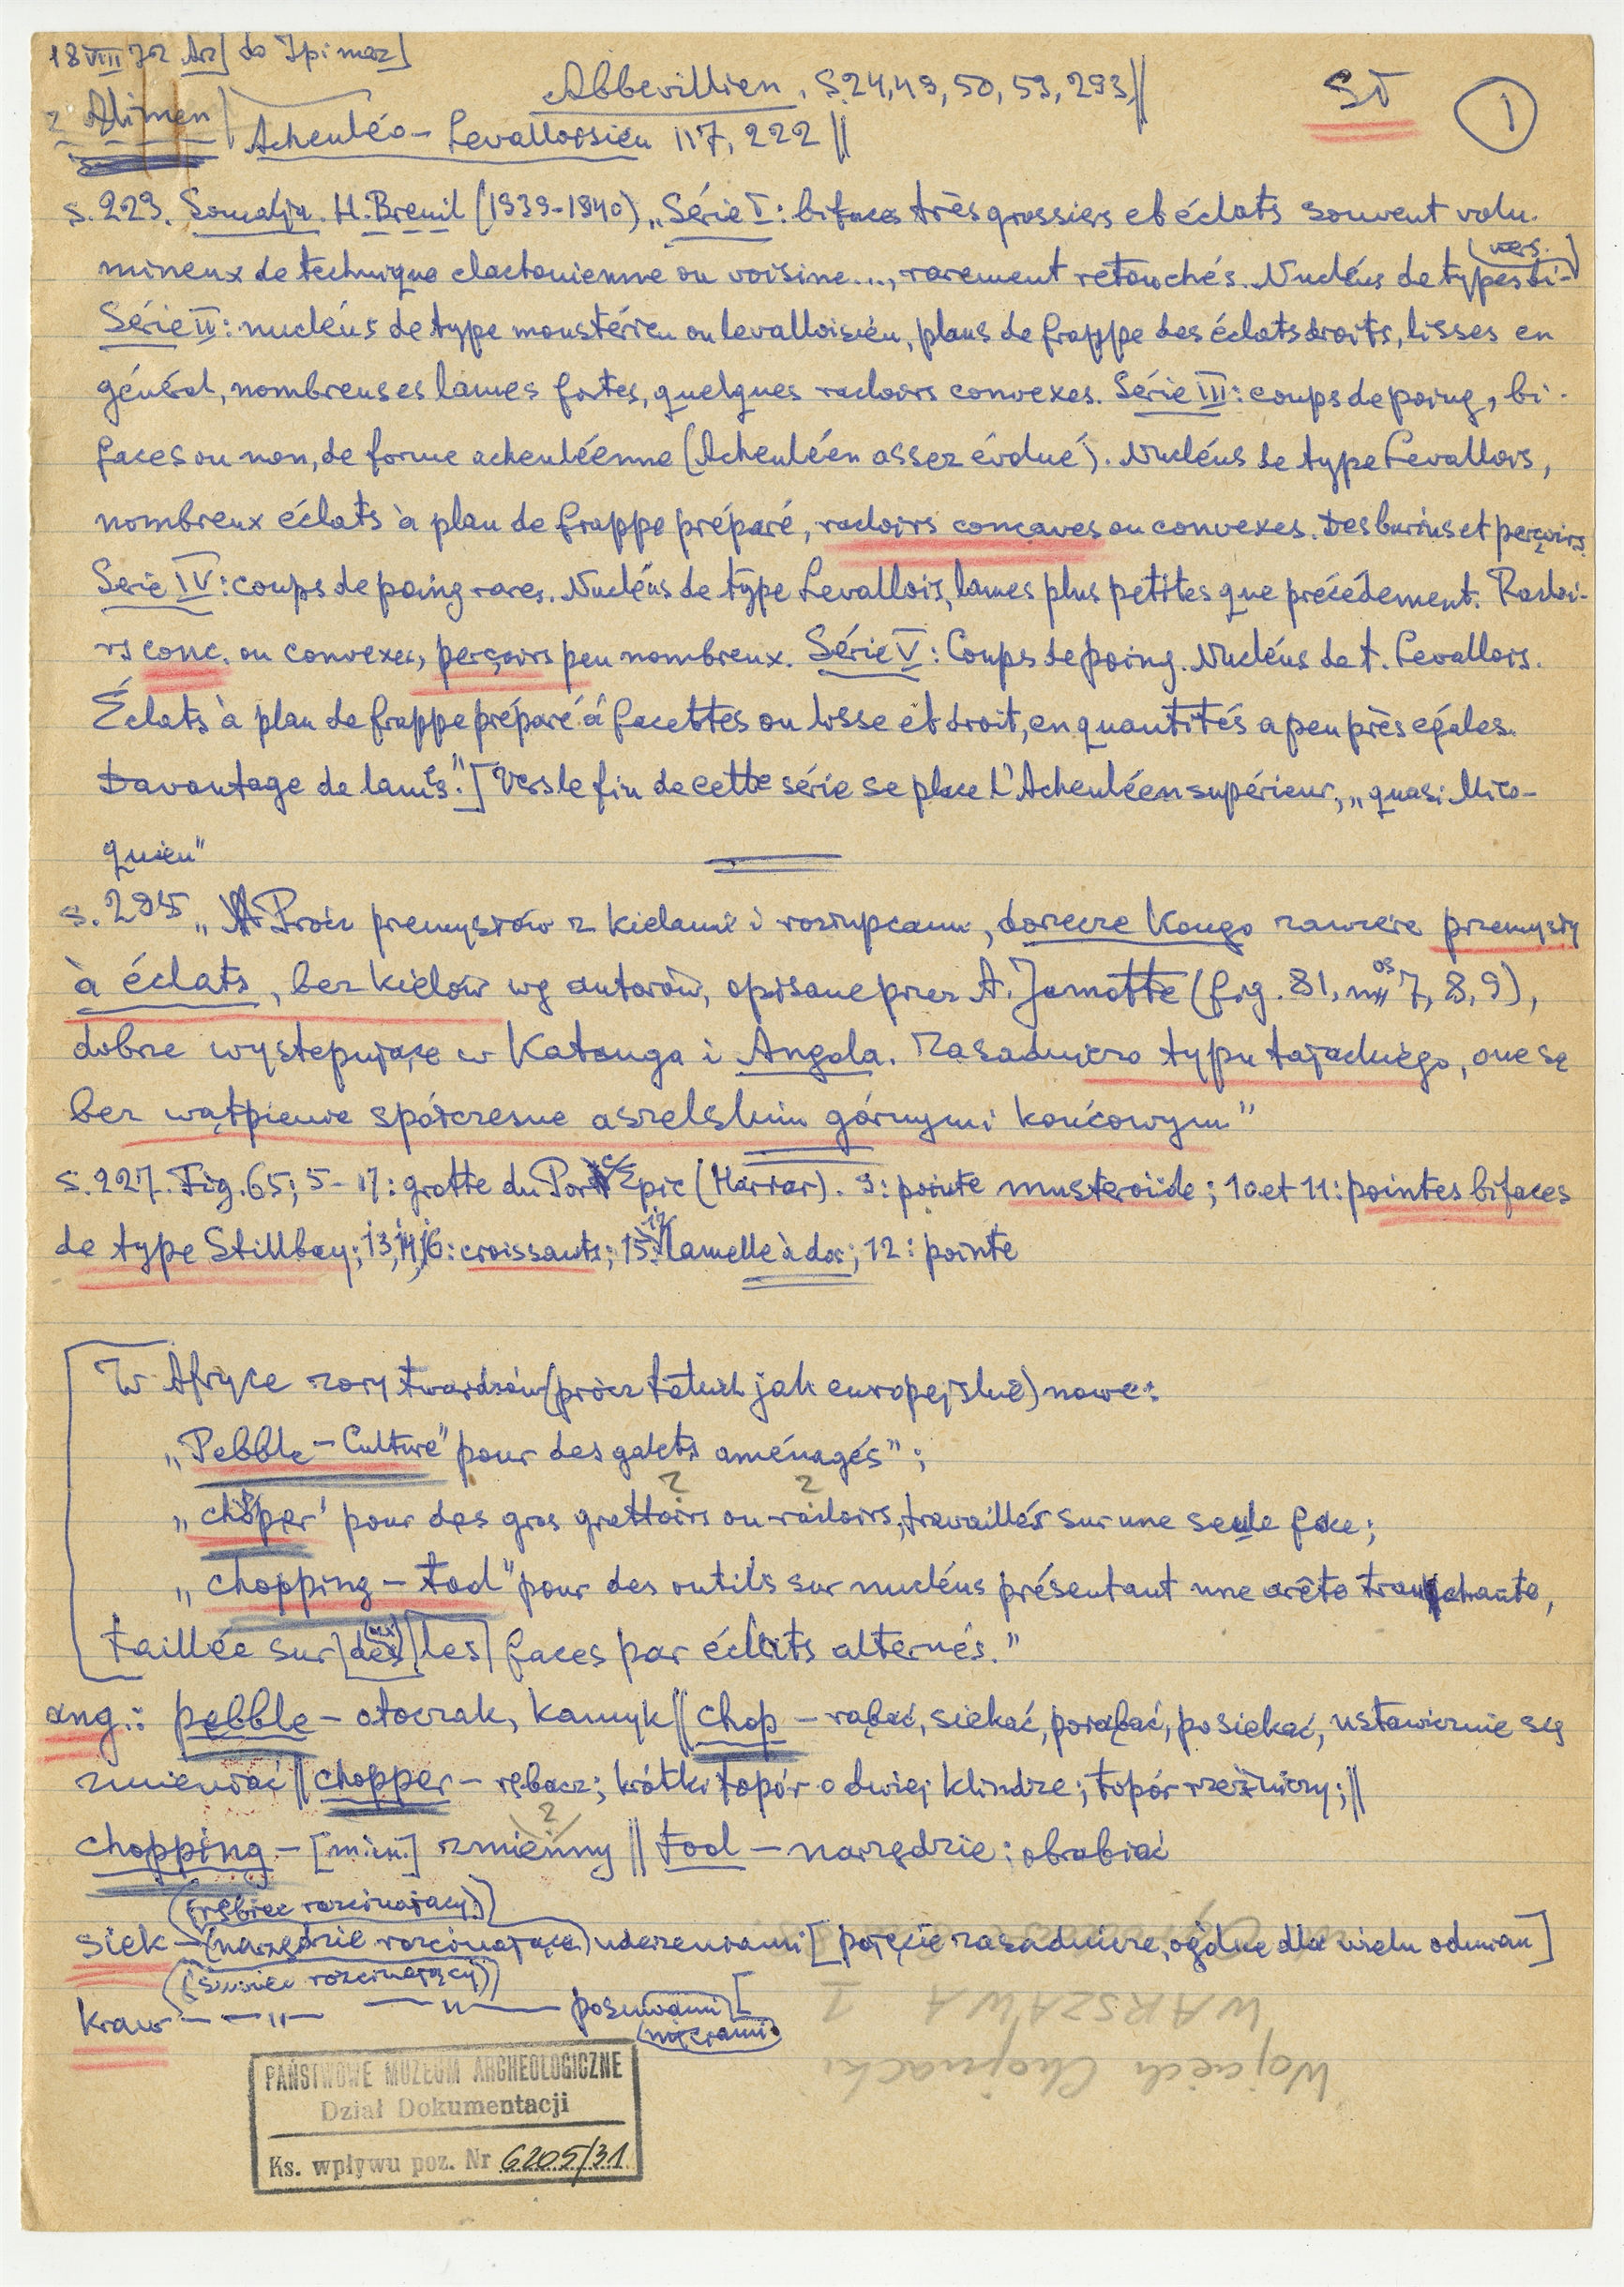 18 VIII 72 Arz] do Ipimarz]
z Alimen Abbevillien, S. 24, 49, 50, 59, 293, || SJ 1
Acheuléo – Levalloisien 117, 222 ||
s. 223. Somalja. H. Breuil (1939-1940) „Série I: bifaces très grossiers et éclats souvent volu-
mineux de technique clactonienne ou voisine..., rarement retouchés. Nucléus de types di- (vers.)
Série II: nucléus de type moustérien ou levalloisien, plans de frappe des éclats droits, lisses en
général, nombreuses lames fortes, quelques racloirs convexes. Série III: coups de poing, bi-
faces ou non, de forme acheuléenne (Acheuléen assez évolué). Nucléus de type Levallois,
nombreux éclats à plan de frappe préparé, racloirs concaves ou convexes. Des burins et perçoirs.
Serie IV: coups de poing rares. Nucléus de type Levallois, lames plus petites que précédement. Racloi-
rs conc. ou convexes, perçoirs peu nombreux. Série V: Coups de poing. Nucléus de t. Levallois.
Éclats à plan de frappe préparé à facettes ou lisse et droit, en quantités a peu près egales.
Davantage de lames." ] Vers le fin de cette série se place l'Acheuléen supérieur, „quasi Mico-
quien"
s. 295 „Prócz przemysłów z kielami i rozłupcami, dorzecze Kongo zawiera przemysły
à éclats, bez kielów wg autorów, opisane przez A. Jamotte (fig. 81, nos 7, 8, 9),
dobrze występujące w Katanga i Angola. Zasadniczo typu tajackiego, one są
bez wątpienia spółczesne aszelskim górnym i końcowym"
s. 227. Fig. 65; 5 – 17: grotte du Porc Epic (Harrar). 9: pointe musteroide; 10 et 11: pointes bifaces
de type Stillbay; 13, 14, 16: croissants; 15, 17: lamelle à dos; 12: pointe
W Afryce wory twardzów (prócz takich jak europejskie) nowe:
„Pebble – Culture" pour des galets aménagés";
„chopper" pour des gros grattoirs ou racloirs, travaillés sur une seule face;
? ?
„chopping – tool" pour des outils sur nucléus présentant une arête tranchante,
taillée sur [des] [les] faces par éclats alternés."
ang.: pebble – otoczak, kamyk || chop – rąbać, siekać, porąbać, posiekać, ustawicznie się
zmieniać || chopper – rębacz; krótki topór o dwiej klindze; topór rzeźniczy; ||
chopping – [min.] zmienny || tool – narzędzie; obrabiać
?
(rębiec rozcinający)
siek – (narzędzie rozcinające) uderzeniami [pojęcie zasadnicze, ogólne dla wielu odmian]
(suwiec rozcinający)
kraw – — „ — — „ — posuwami [
(nięciami)
WARSZAWA I
Wojciech Chojnacki
PAŃSTWOWE MUZEUM ARCHEOLOGICZNE
Dział Dokumentacji
Ks. wpływu poz. Nr 6205/31